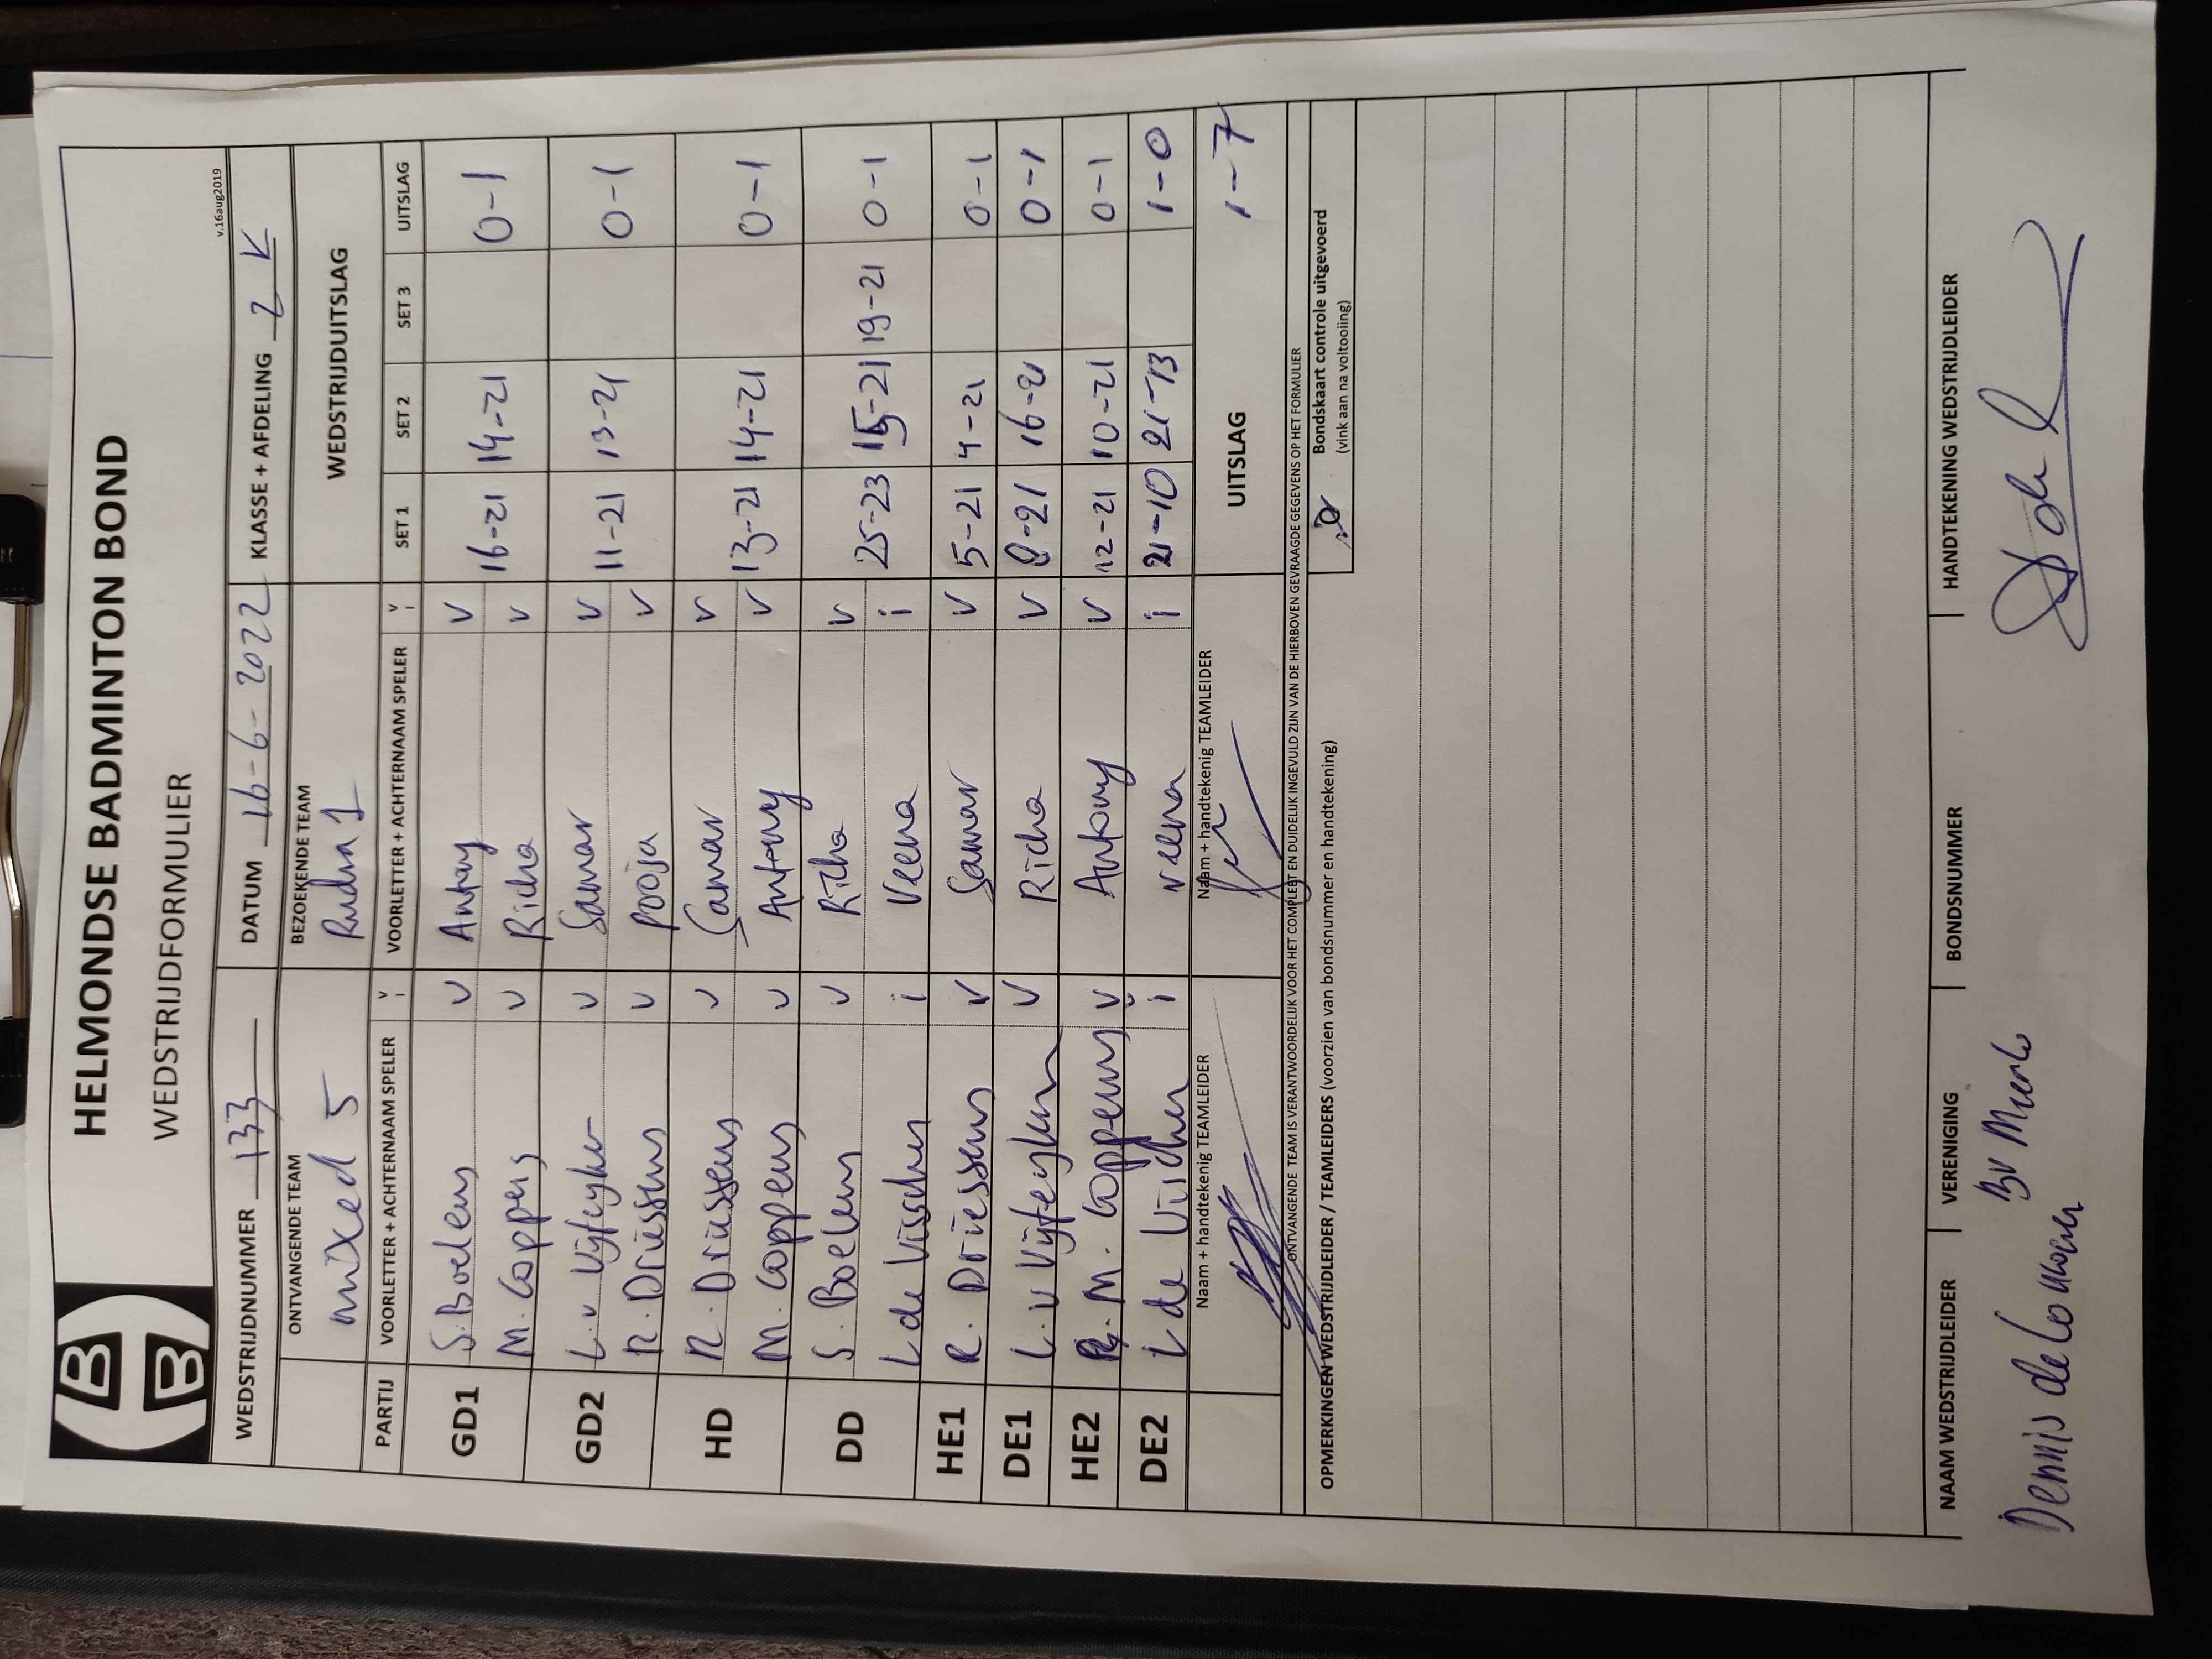 HELMONDSE BADMINTON BOND
WEDSTRIJDFORMULIER
v.16aug2019
WEDSTRIJDNUMMER 133 DATUM 16-6-2022 KLASSE + AFDELING 2 K
ONTVANGENDE TEAM BEZOEKENDE TEAM WEDSTRIJDUITSLAG
mixed 5 Rudra 1
PARTIJ VOORLETTER + ACHTERNAAM SPELER V I VOORLETTER + ACHTERNAAM SPELER V I SET 1 SET 2 SET 3 UITSLAG
GD1 S. Boelens v Antony v 16-21 14-21 0-1
M. Coppens v Richa v
GD2 L. v Vijfeyken v Samar v 11-21 13-21 0-1
R. Driessens v Pooja v
HD R. Driessens v Samar v 13-21 14-21 0-1
M. Coppens v Antony v
DD S. Boelens v Richa v 25-23 15-21 19-21 0-1
L de Visscher i Veena i
HE1 R. Driessens v Samar v 5-21 4-21 0-1
DE1 L. v Vijfeyken v Richa v 8-21 16-21 0-1
HE2 M. Coppens v Antony v 12-21 10-21 0-1
DE2 L de Visscher i Veena i 21-10 21-13 1-0
Naam + handtekenig TEAMLEIDER Naam + handtekenig TEAMLEIDER UITSLAG 1-7
ONTVANGENDE TEAM IS VERANTWOORDELIJK VOOR HET COMPLEET EN DUIDELIJK INGEVULD ZIJN VAN DE HIERBOVEN GEVRAAGDE GEGEVENS OP HET FORMULIER
OPMERKINGEN WEDSTRIJDLEIDER / TEAMLEIDERS (voorzien van bondsnummer en handtekening)
Bondskaart controle uitgevoerd
(vink aan na voltooiing)
NAAM WEDSTRIJDLEIDER VERENIGING BONDSNUMMER HANDTEKENING WEDSTRIJDLEIDER
Dennis de Louwere BV Mierlo